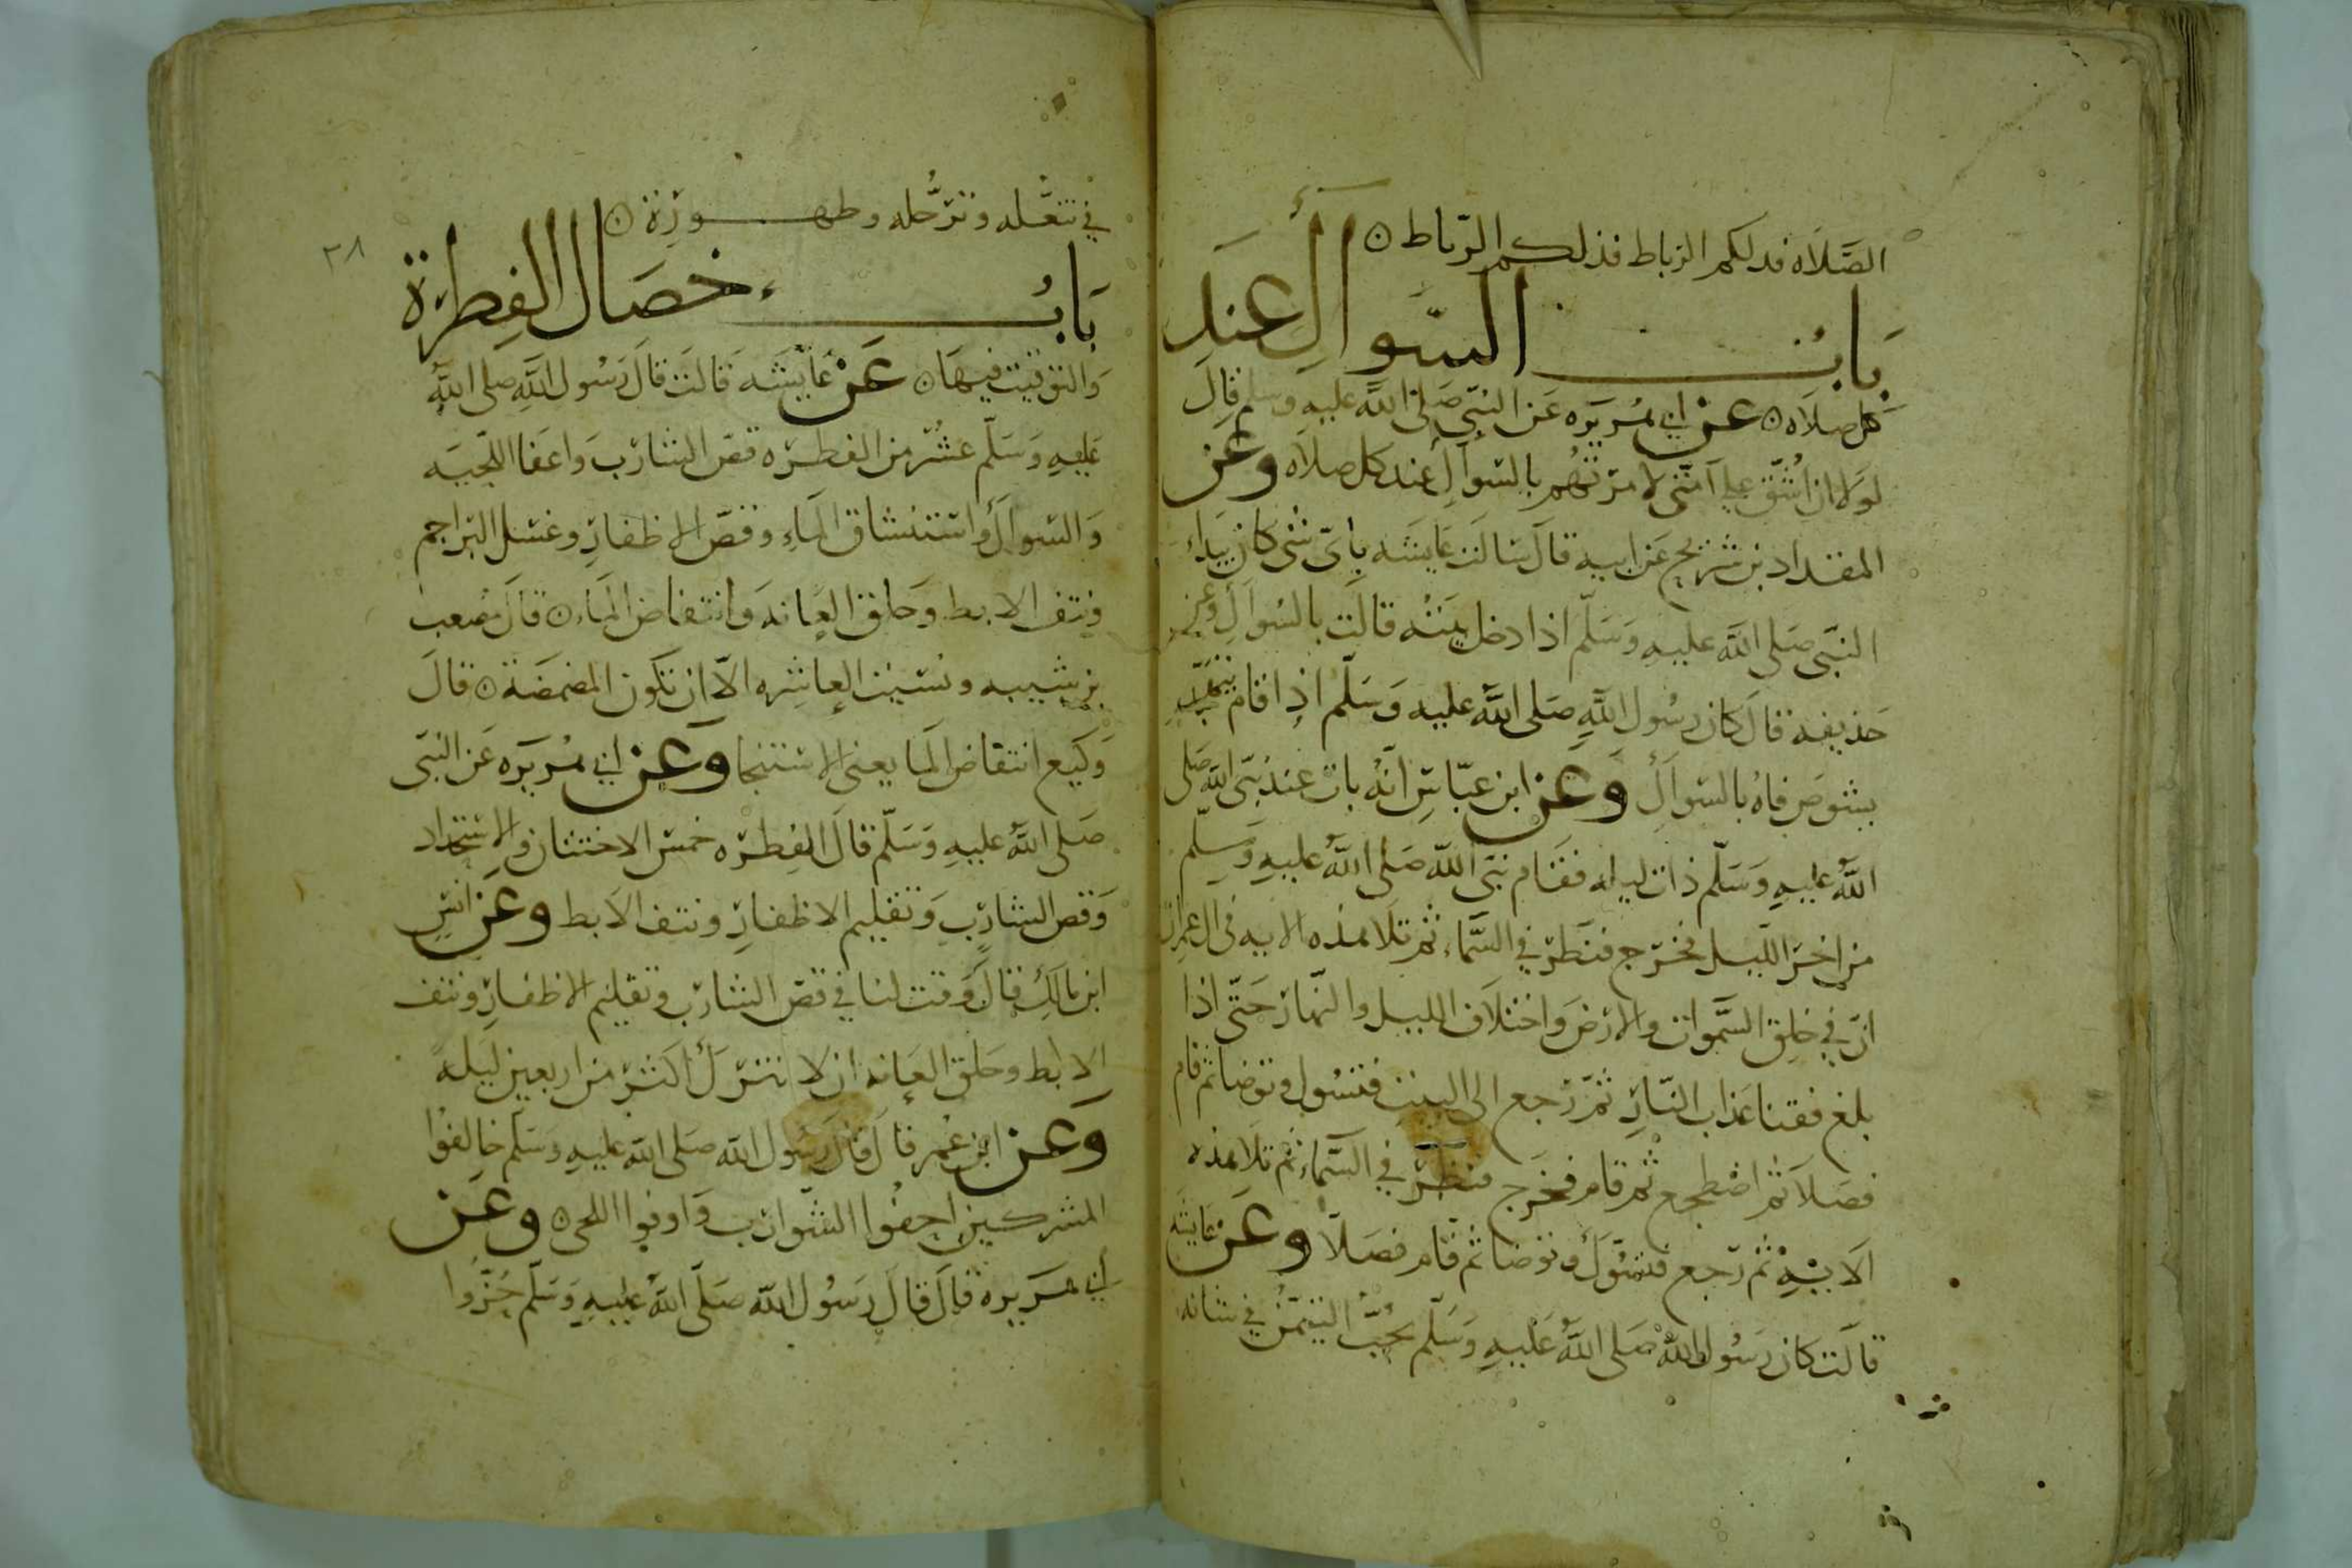 الصَّلَاه فدلكم الرباط فذلكم الرّباط ن
بَابُ السّوالِ عِندَ
كل صلاه ن عن ابي هُريَره عَن النبّي صَلى اللّه عليه وسلم قالَ
لَولا ان اشُقّ علي اُمّتي لامرتُهُم بالسّوالِ عند كل صلاه وعَن
المقداد بن شريح عَن ابيه قالَ سَالَت عَايشَه بايّ شى كان يَبدَاء
النبّى صَلى اللّه عليه وَسَلّم اذا دخل بَيتُه قالَت بالسّوالِ وعَن
حَذيفه قالَ كان رسُول اللّهِ صَلى اللّه عليه وَسَلّم اذا قام يتهَجّد
يشوصَ فاهُ بالسّوالَ وَعَن ابن عبّاسٍ انهُ بات عِند نبَى اللّه صَلى
اللّه عليهِ وَسَلّم ذات ليله فقَام نبَى اللّه صَلى اللّهُ عليهِ وَسلّم
من اخرَ اللّيل فخرَج فنظَر في السّماء ثم تلَا هذه الايه فى ال عمران
انّ في خلق السّموات والارضَ واختلَاف الليل والنهار حَتّى اذا
بلغ فقنا عَذاب النّارِ ثمّ رَجع الى البيت فتسَوك وتوَضا ثم قام
فصَلاَ ثم اضطجع ثم قام فخرَج فنظرّ في السّماء ثم تلَا هذه
الاَيه ثم رَجع فتسَوّك وتوَضا ثم قام فصَلاَ وعَن عَايشَه
قالَت كان رَسُول اللّه صَلى اللّهُ عَليهِ وَسَلّم يحبُّ التيَمّن في شانه
في تنعّله وترَجُّله وطهورِهْ ن
٢٨
بَابُ خصَال الفِطرَة
وَالتوقيت فيهَا ن عَن عَايشَه قَالَت قالَ رَسُول اللّهِ صلى اللّهُ
عَليهِ وَسَلّم عشرُ من الفطرَه قصّ الشارَب وَاعَفا اللّحيَه
وَالسّوالَ واستنشاق المَاءِ وقصّ الاظفارِ وغسْل البرَاجم
ونتف الابط وَحلق العَانه وَانتقاض المَاء ن قالَ مُصعب
بن شيبه ونسَيت العاشِره الّا ان تكون المضمَضَة ن قالَ
وَكيَع انتقاض المَا يعنى الاستنجا وَعَن ابي هُريَره عَن النبّى
صَلى اللّهُ عليهِ وَسَلّم قالَ الفِطرَه خمسَ الاختتان والاستحدَاد
وَقص الشارِبِ وَتقليم الاظفارِ ونتف الاَبط وعَن انَسٍ
ابن مالكٍ قالَ وقت لنا في قصّ الشارَب وتقليم الاظفارِ ونتف
الابط وحَلق العَانه ان لا نترَك اكثرَ من اربعين ليَلةً
وَعَن ابن عُمر قالَ قالَ رَسُول اللّه صَلى اللّه عليهِ وَسَلّم خالفوُا
المشركين احفُوا الشّوارَب وَاوفوا اللحى ن وعَن
أبي هُرَيره قالَ قالَ رَسُول اللّه صَلّى اللّهُ عليهِ وَسَلّم جُزّوا